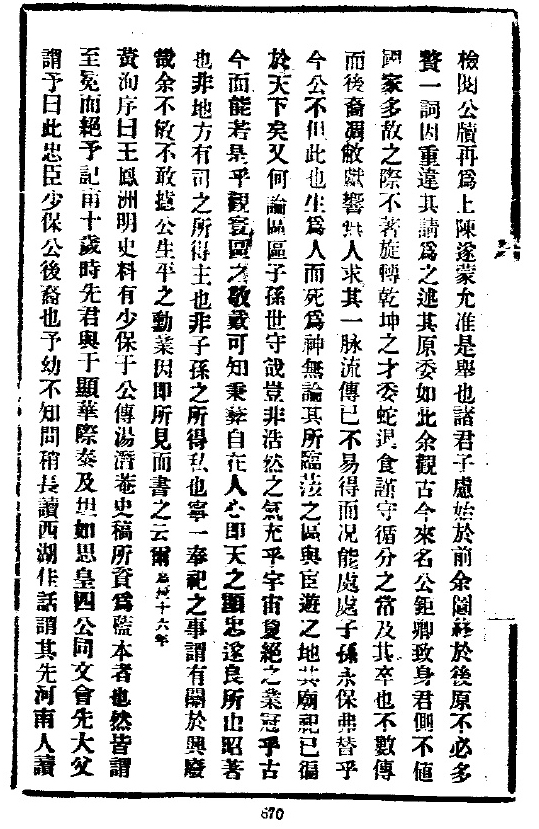 檢閱公牘再爲上陳遂蒙允准是舉也諸君子慮始於前余圖終於後原不必多
贅一詞因重違其請爲之述其原委如此余觀古今來名公鉅卿致身君側不値
國家多故之際不著旋轉乾坤之才委蛇退食謹守循分之常及其卒也不數傳
而後裔凋敝獻響無人求其一脉流傳已不易得而况能處處子孫永保弗替乎
今公不但此也生爲人而死爲神無論其所臨莅之區與宦遊之地其廟祀已徧
於天下矣又何論區區子孫世守哉豈非浩然之氣充乎宇宙敻絕之業冠乎古
今而能若是乎觀寰區之敬戴可知秉彝自在人心卽天之顯忠遂良所由昭著
也非地方有司之所得主也非子孫之所得私也寧一奉祀之事謂有關於興廢
哉余不敏不敢摭公生平之勳業因卽所見而書之云爾 十六年
黃洵序曰王鳳洲明史料有少保于公傳湯潛菴史稿所資爲藍本者也然皆謂
至冕而絕予記甫十歲時先君與于顯華際泰及坦如思皇四公同文會先大父
謂予曰此忠臣少保公後裔也予幼不知問稍長讀西湖佳話謂其先河南人讀
670